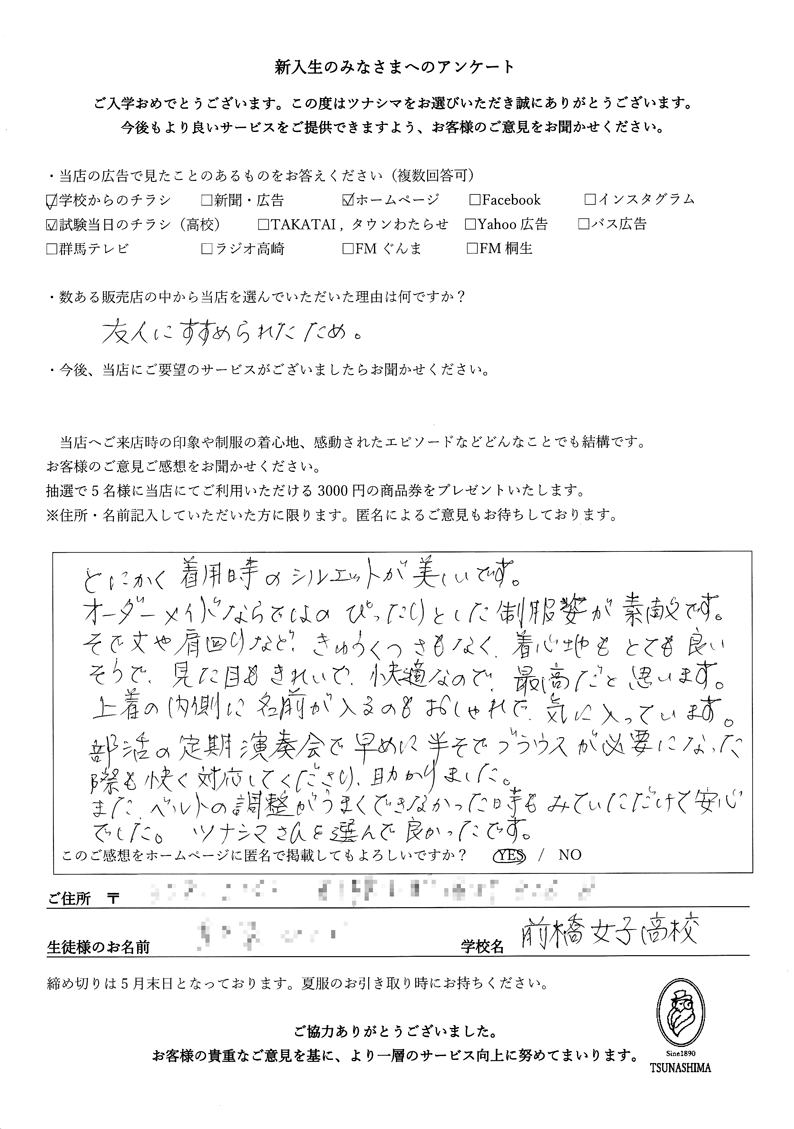 新入生のみなさまへのアンケート
ご入学おめでとうございます。この度はツナシマをお選びいただき誠にありがとうございます。
今後もより良いサービスをご提供できますよう、お客様のご意見をお聞かせください。
・当店の広告で見たことのあるものをお答えください（複数回答可）
☑学校からのチラシ　□新聞・広告　☑ホームページ　□Facebook　□インスタグラム
☑試験当日のチラシ（高校）　□TAKATAI , タウンわたらせ　□Yahoo 広告　□バス広告
□群馬テレビ　□ラジオ高崎　□FM ぐんま　□FM 桐生
・数ある販売店の中から当店を選んでいただいた理由は何ですか？
友人にすすめられたため。
・今後、当店にご要望のサービスがございましたらお聞かせください。
当店へご来店時の印象や制服の着心地、感動されたエピソードなどどんなことでも結構です。
お客様のご意見ご感想をお聞かせください。
抽選で 5 名様に当店にてご利用いただける 3000 円の商品券をプレゼントいたします。
※住所・名前記入していただいた方に限ります。匿名によるご意見もお待ちしております。
とにかく着用時のシルエットが美しいです。
オーダーメイドならではのぴったりとした制服姿が素敵です。
そで丈や肩回りなど、きゅうくつさもなく、着心地もとても良い
そうで、見た目もきれいで、快適なので、最高だと思います。
上着の内側に名前が入るのもおしゃれで、気に入っています。
部活の定期演奏会で早めに半そでブラウスが必要になった
際も快く対応してくださり、助かりました。
また、ベルトの調整がうまくできなかった時もみていただけて安心
でした。 ツナシマさんを選んで良かったです。
このご感想をホームページに匿名で掲載してもよろしいですか？　YES　/　NO
ご住所　〒
生徒様のお名前　学校名　前橋女子高校
締め切りは 5 月末日となっております。夏服のお引き取り時にお持ちください。
ご協力ありがとうございました。
お客様の貴重なご意見を基に、より一層のサービス向上に努めてまいります。
Sine1890
TSUNASHIMA